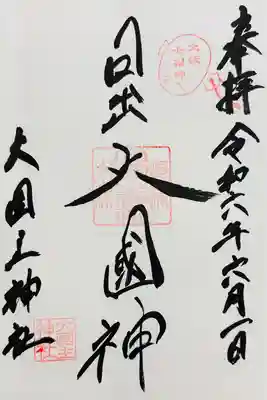 奉拝 令和六年六月一日
日出大國神
大国主神社